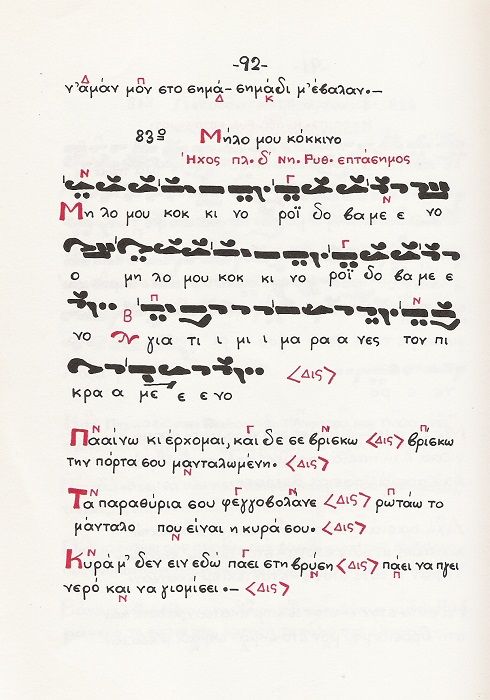 -92-
ν'αμάν μον στο σημά- σημάδι μ'έβαλαν.-
83ο Μήλο μου κόκκινο
Ήχος πλ. δ' Νη. Ρυθ. επτάσημος
Μη λο μου κοκ κι νο ροϊ δο βα με ε νο
ο μη λο μου κοκ κι νο ροϊ δο βα με ε
νο για τι ι μι μα ρα α νες τον πι
κρα α με ε ε νο <Δις>
Πααίνω κι έρχομαι, και δε σε βρίσκω <Δις> βρίσκω
την πόρτα σου μανταλωμένη. <Δις>
Τα παραθύρια σου φεγγοβολάνε <Δις> ρωτάω το
μάνταλο που είναι η κυρά σου. <Δις>
Κυρά μ' δεν ειν εδώ πάει στη βρύση <Δις> πάει να πιει
νερό και να γιομίσει.- <Δις>